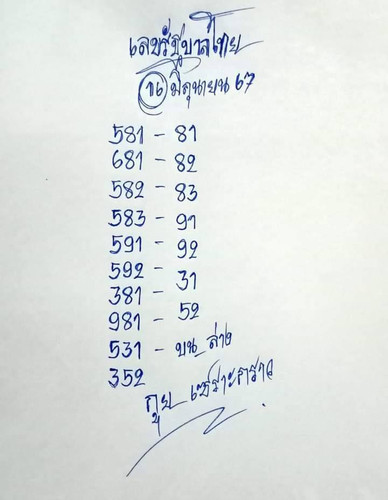 เลขรัฐบาลไทย
16 มิถุนายน 67
581 - 81
681 - 82
582 - 83
583 - 91
591 - 92
592 - 31
381 - 52
981
531 - บน ล่าง
352